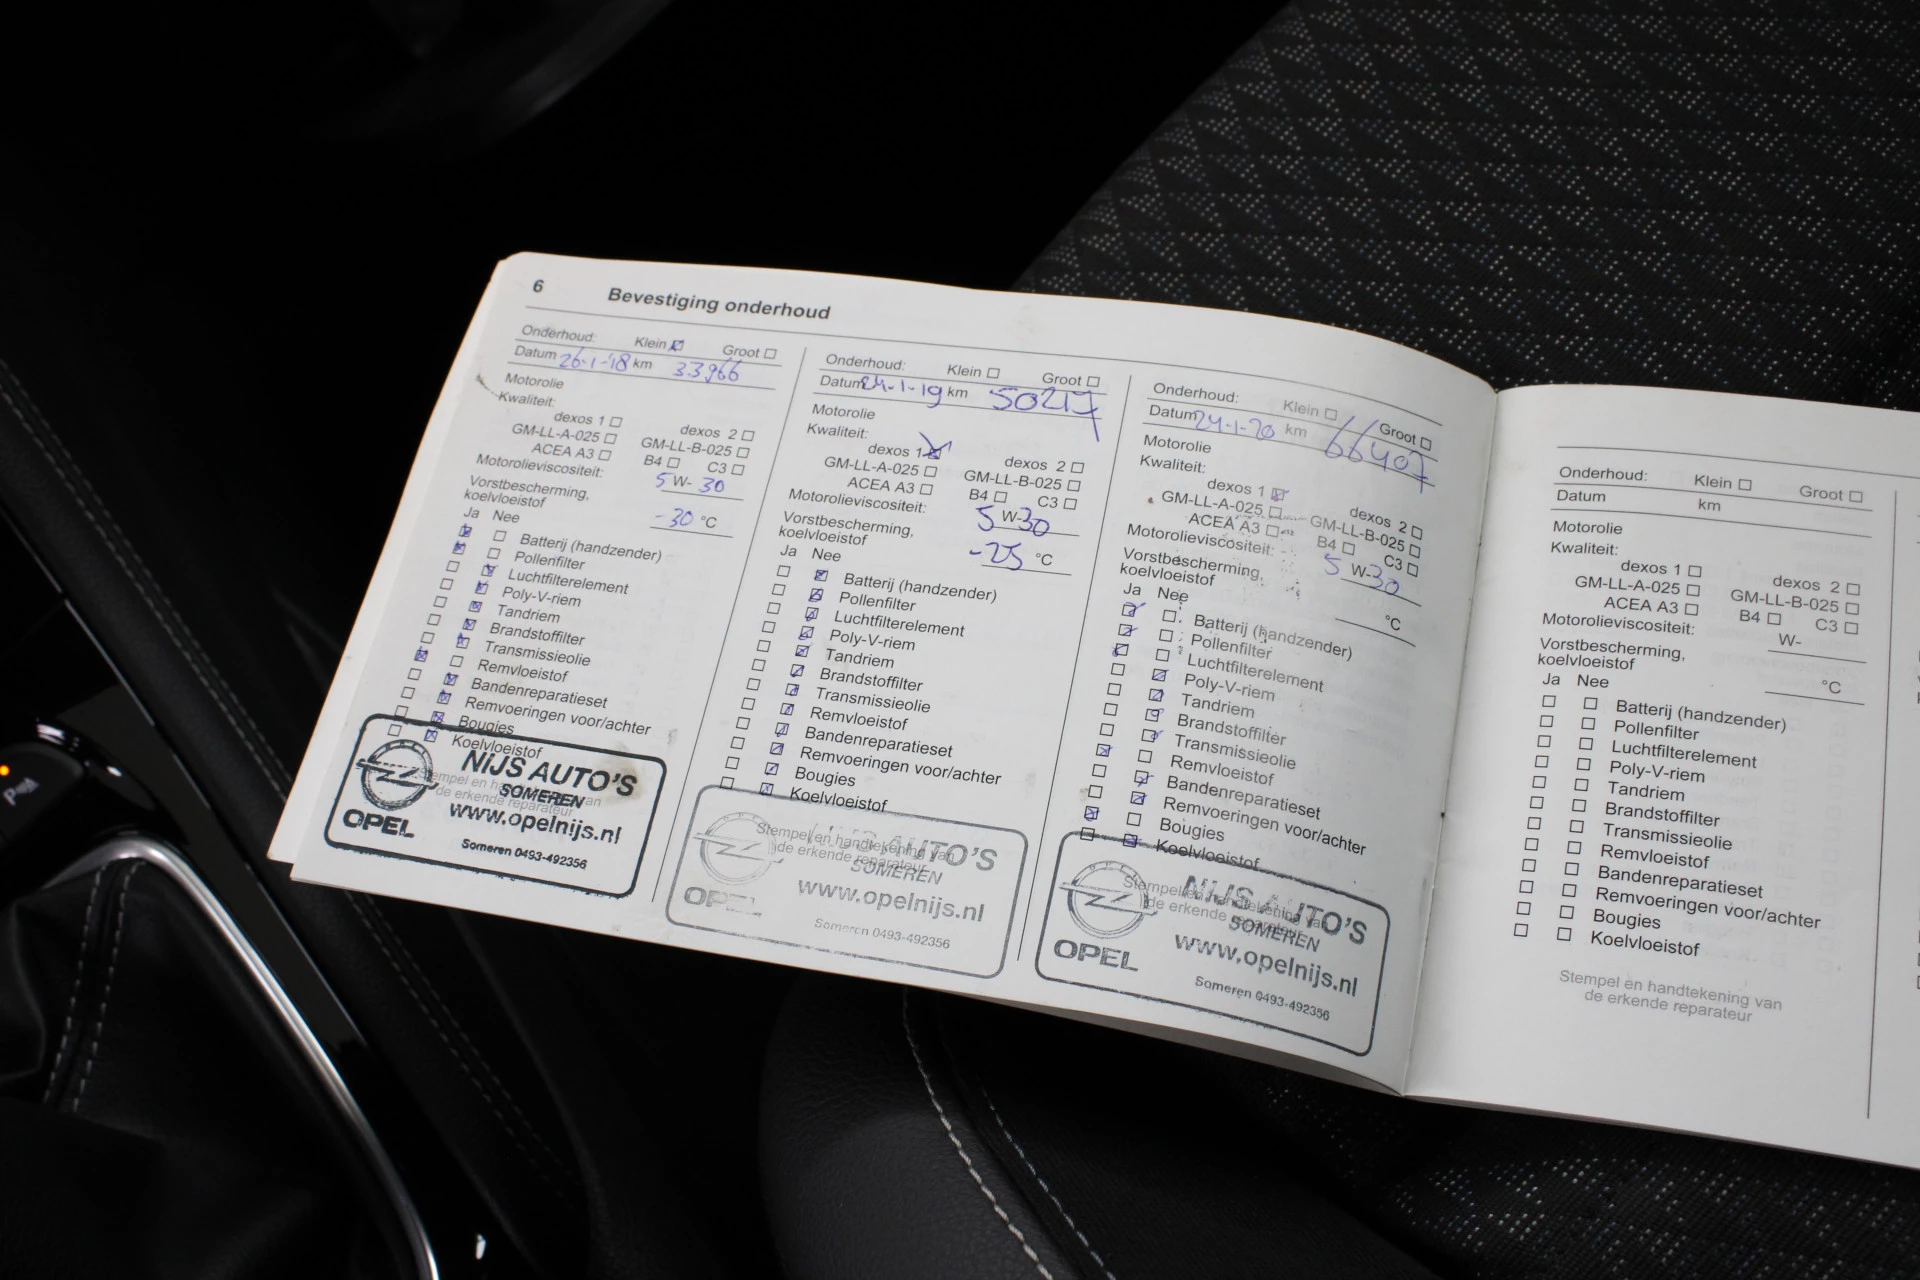 6 Bevestiging onderhoud
Onderhoud: Klein Groot
Datum 26-1-'18 km 33966
Motorolie
Kwaliteit:
dexos 1 dexos 2
GM-LL-A-025 GM-LL-B-025
ACEA A3 B4 C3
Motorolieviscositeit: 5 W- 30
Vorstbescherming,
koelvloeistof -30 °C
Ja Nee
Batterij (handzender)
Pollenfilter
Luchtfilterelement
Poly-V-riem
Tandriem
Brandstoffilter
Transmissieolie
Remvloeistof
Bandenreparatieset
Remvoeringen voor/achter
Bougies
Koelvloeistof
Stempel en handtekening van
de erkende reparateur
NIJS AUTO'S
SOMEREN
www.opelnijs.nl
OPEL
Someren 0493-492356
Onderhoud: Klein Groot
Datum 24-1-19 km 50217
Motorolie
Kwaliteit:
dexos 1 dexos 2
GM-LL-A-025 GM-LL-B-025
ACEA A3 B4 C3
Motorolieviscositeit: 5 W-30
Vorstbescherming,
koelvloeistof -25 °C
Ja Nee
Batterij (handzender)
Pollenfilter
Luchtfilterelement
Poly-V-riem
Tandriem
Brandstoffilter
Transmissieolie
Remvloeistof
Bandenreparatieset
Remvoeringen voor/achter
Bougies
Koelvloeistof
Stempel en handtekening van
de erkende reparateur
NIJS AUTO'S
SOMEREN
www.opelnijs.nl
OPEL
Someren 0493-492356
Onderhoud: Klein Groot
Datum 24-1-20 km 66407
Motorolie
Kwaliteit:
dexos 1 dexos 2
GM-LL-A-025 GM-LL-B-025
ACEA A3 B4 C3
Motorolieviscositeit: 5 W-30
Vorstbescherming,
koelvloeistof °C
Ja Nee
Batterij (handzender)
Pollenfilter
Luchtfilterelement
Poly-V-riem
Tandriem
Brandstoffilter
Transmissieolie
Remvloeistof
Bandenreparatieset
Remvoeringen voor/achter
Bougies
Koelvloeistof
Stempel en handtekening van
de erkende reparateur
NIJS AUTO'S
SOMEREN
www.opelnijs.nl
OPEL
Someren 0493-492356
Onderhoud: Klein Groot
Datum km
Motorolie
Kwaliteit:
dexos 1 dexos 2
GM-LL-A-025 GM-LL-B-025
ACEA A3 B4 C3
Motorolieviscositeit: W-
Vorstbescherming,
koelvloeistof °C
Ja Nee
Batterij (handzender)
Pollenfilter
Luchtfilterelement
Poly-V-riem
Tandriem
Brandstoffilter
Transmissieolie
Remvloeistof
Bandenreparatieset
Remvoeringen voor/achter
Bougies
Koelvloeistof
Stempel en handtekening van
de erkende reparateur